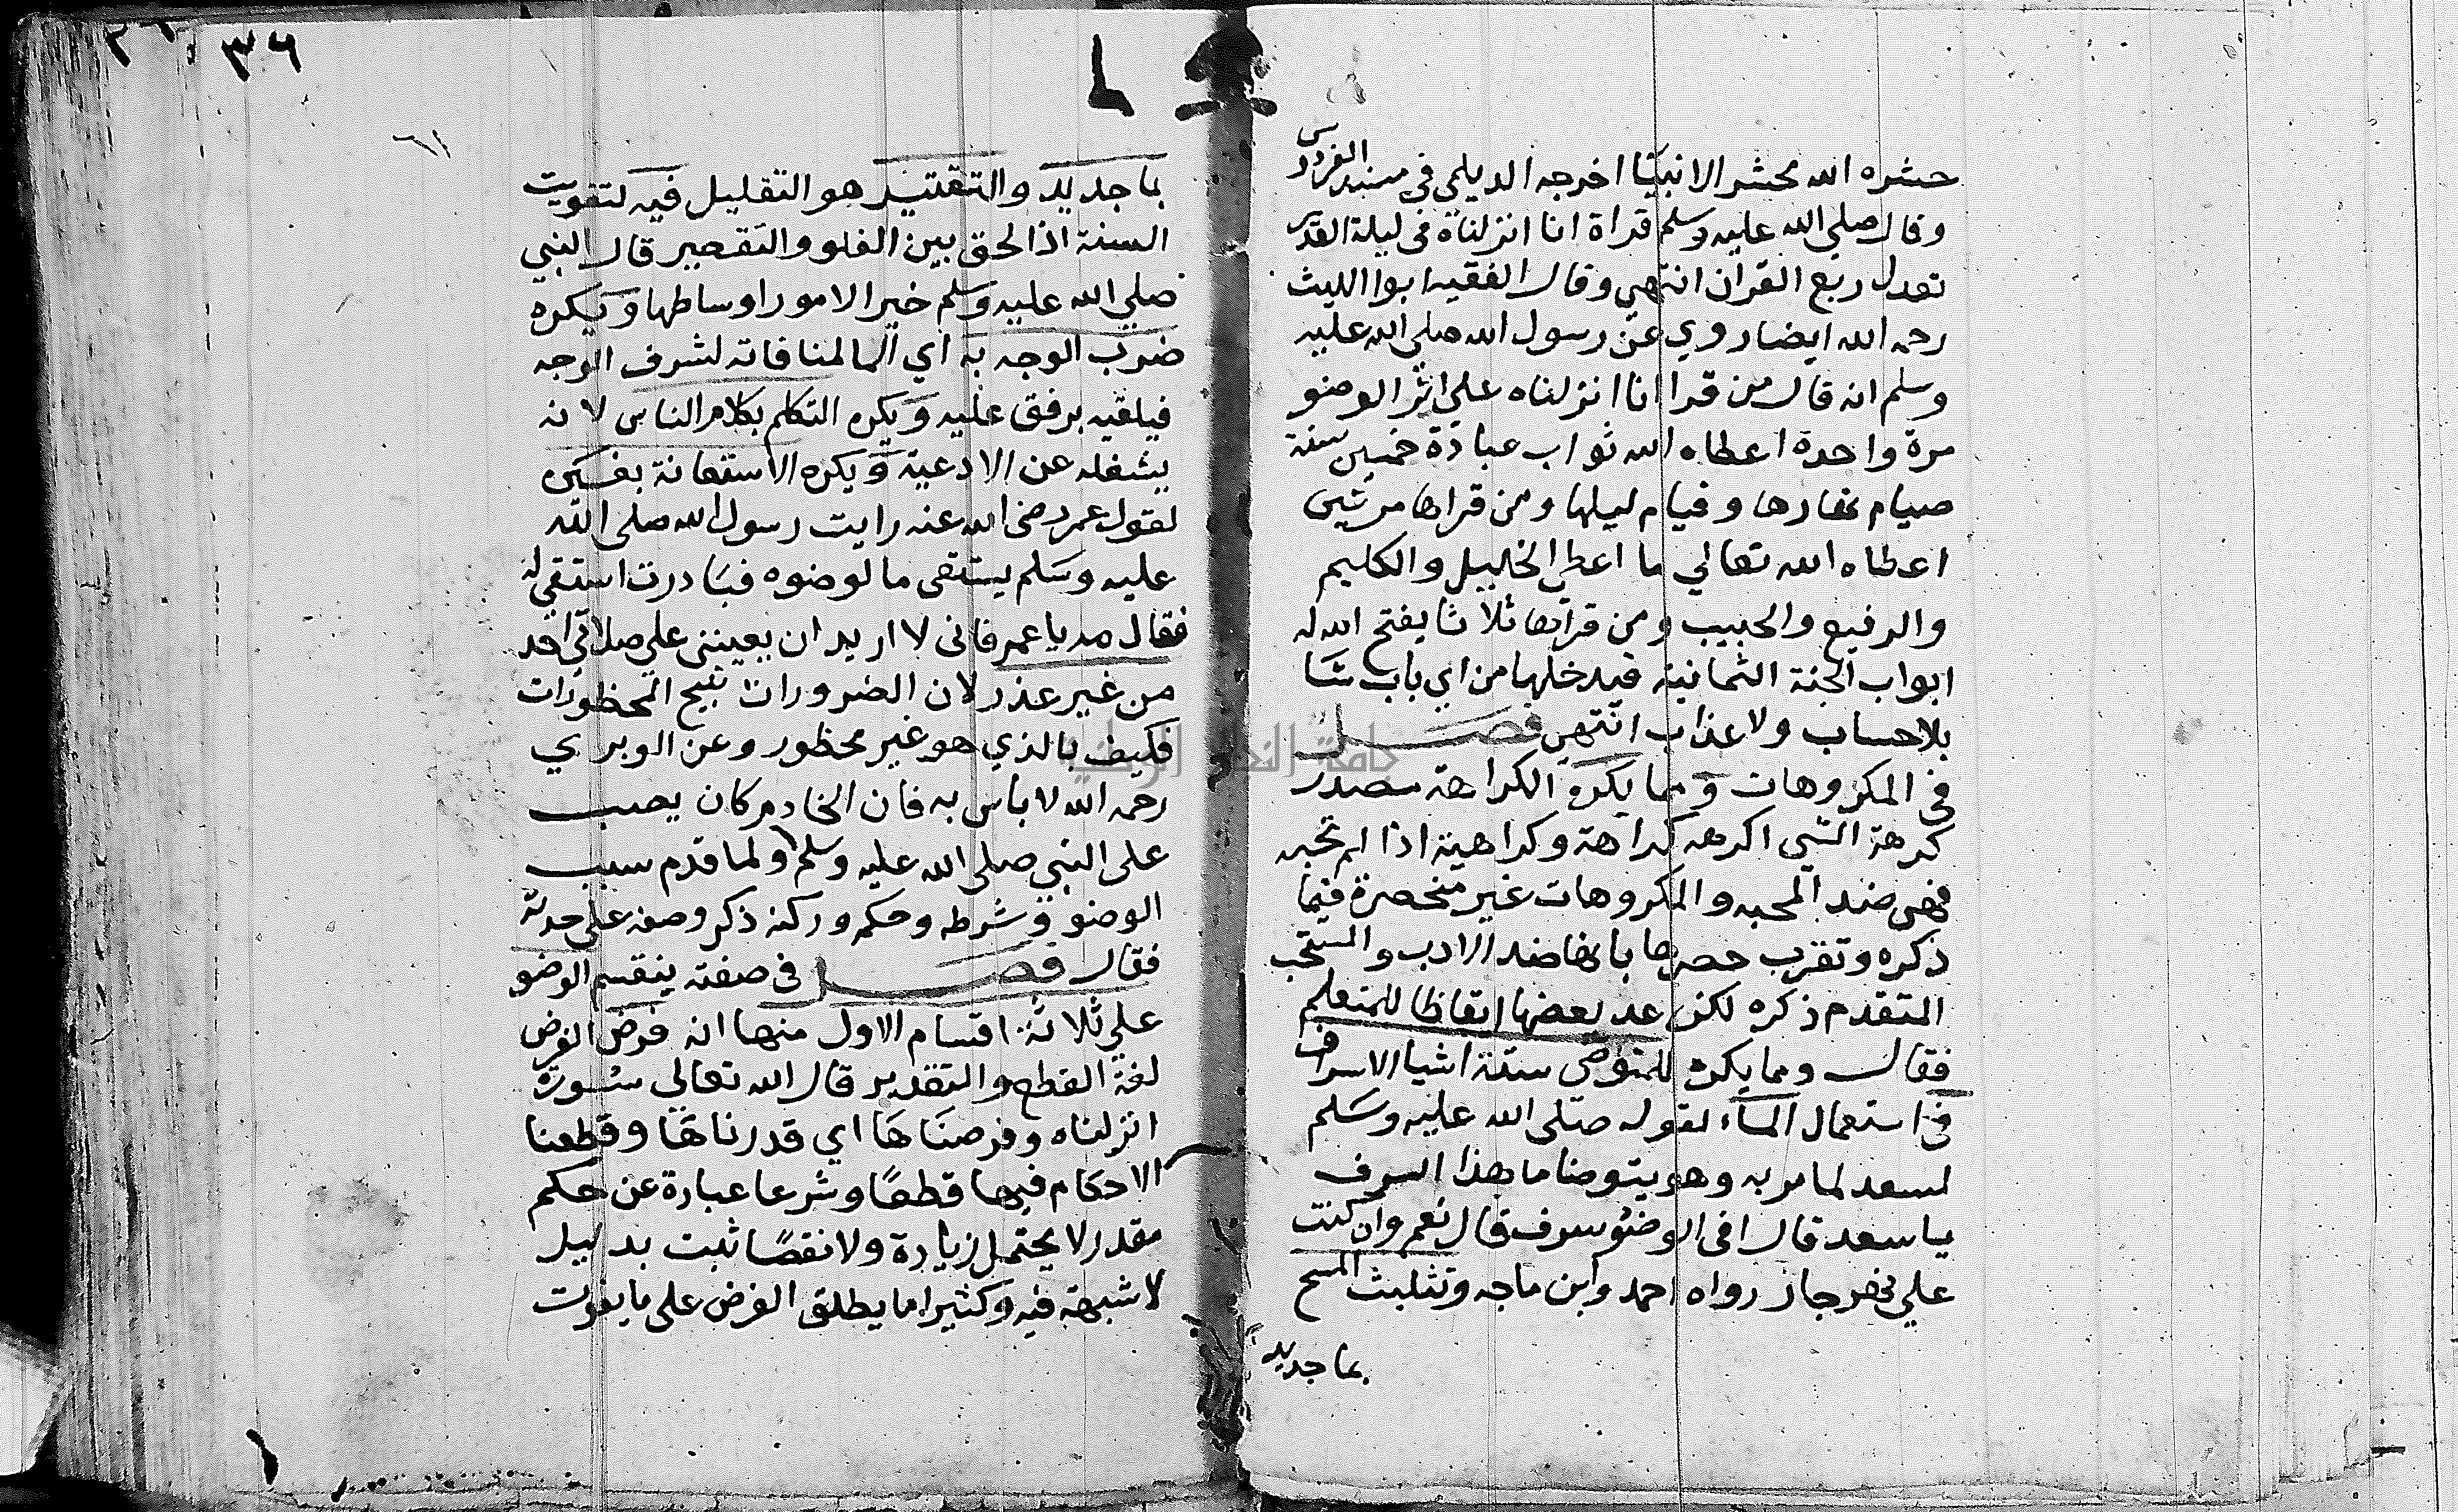 حشره الله محشر الانبيا اخرجه الديلمي في مسند الفردوس
وقال صلي الله عليه وسلم قراة انا انزلناه في ليلة القدر
تعدل ربع القران انتهي وقال الفقيه ابوا الليث
رحمه الله ايضا روي عن رسول الله صلي الله عليه
وسلم انه قال من قرا انا انزلناه علي اثر الوضو
مرة واحدة اعطاه الله ثواب عبادة خمسين سنة
صيام نهارها وقيام ليلها ومن قراها مرتين
اعطاه الله تعالي ما اعطي الخليل والكليم
والرفيع والحبيب ومن قراها ثلاثا يفتح الله له
ابواب الجنة الثمانية فيدخلها من اي باب شا
بلا حساب ولا عذاب انتهي فصل
في المكروهات ومما يكره الكراهة مصدر
كرهة الشي اكرهه كراهة وكراهية اذا لم تحبه
فهي ضد المحبه والمكروهات غير منحصرة فيما
ذكره وتقرب حصرها بانها ضد الادب والمستحب
المتقدم ذكره لكن عد بعضها ايقاظا للمتعلم
فقال ومما يكره للمتوضي ستة اشيا الاسراف
في استعمال الماء لقوله صلي الله عليه وسلم
لسعد لما مر به وهو يتوضا ما هذا السرف
يا سعد قال افي الوضؤ سرف قال نعم وان كنت
علي نهر جار رواه احمد وابن ماجه وتثليث المسح
بما جديد
٣٦
بما جديد والتقتير هو التقليل فيه لتفويت
السنة اذ الحق بين الغلو والتقصير قال النبي
صلي الله عليه وسلم خير الامور اوساطها ويكره
ضرب الوجه به اي الما لمنافاته لشرف الوجه
فيلقيه برفق عليه ويكره التكلم بكلام الناس لانه
يشغله عن الادعية ويكره الاستعانة بغيره
لقول عمر رضي الله عنه رايت رسول الله صلي الله
عليه وسلم يستقي ما لوضوه فبادرت استقي له
فقال مه يا عمر فاني لا اريد ان يعينني علي صلاتي احد
من غير عذر لان الضرورات تبيح المحظورات
فكيف بالذي هو غير محظور وعن الوبري
رحمه الله لا باس به فان الخادم كان يصب
علي النبي صلي الله عليه وسلم ولما قدم سبب
الوضو وشرطه وحكمه وركنه ذكر وصفه علي حدته
فقال فصل في صفته ينقسم الوضو
علي ثلاثة اقسام الاول منها انه فرض الفرض
لغة القطع والتقدير قال الله تعالي سورة
انزلناه وفرضناها اي قدرناها وقطعنا
الاحكام فيها قطعًا وشرعا عبارة عن حكم
مقدر لا يحتمل زيادة ولا نقصًا ثبت بدليل
لا شبهة فيه وكثيرا ما يطلق الفرض علي ما يفوت